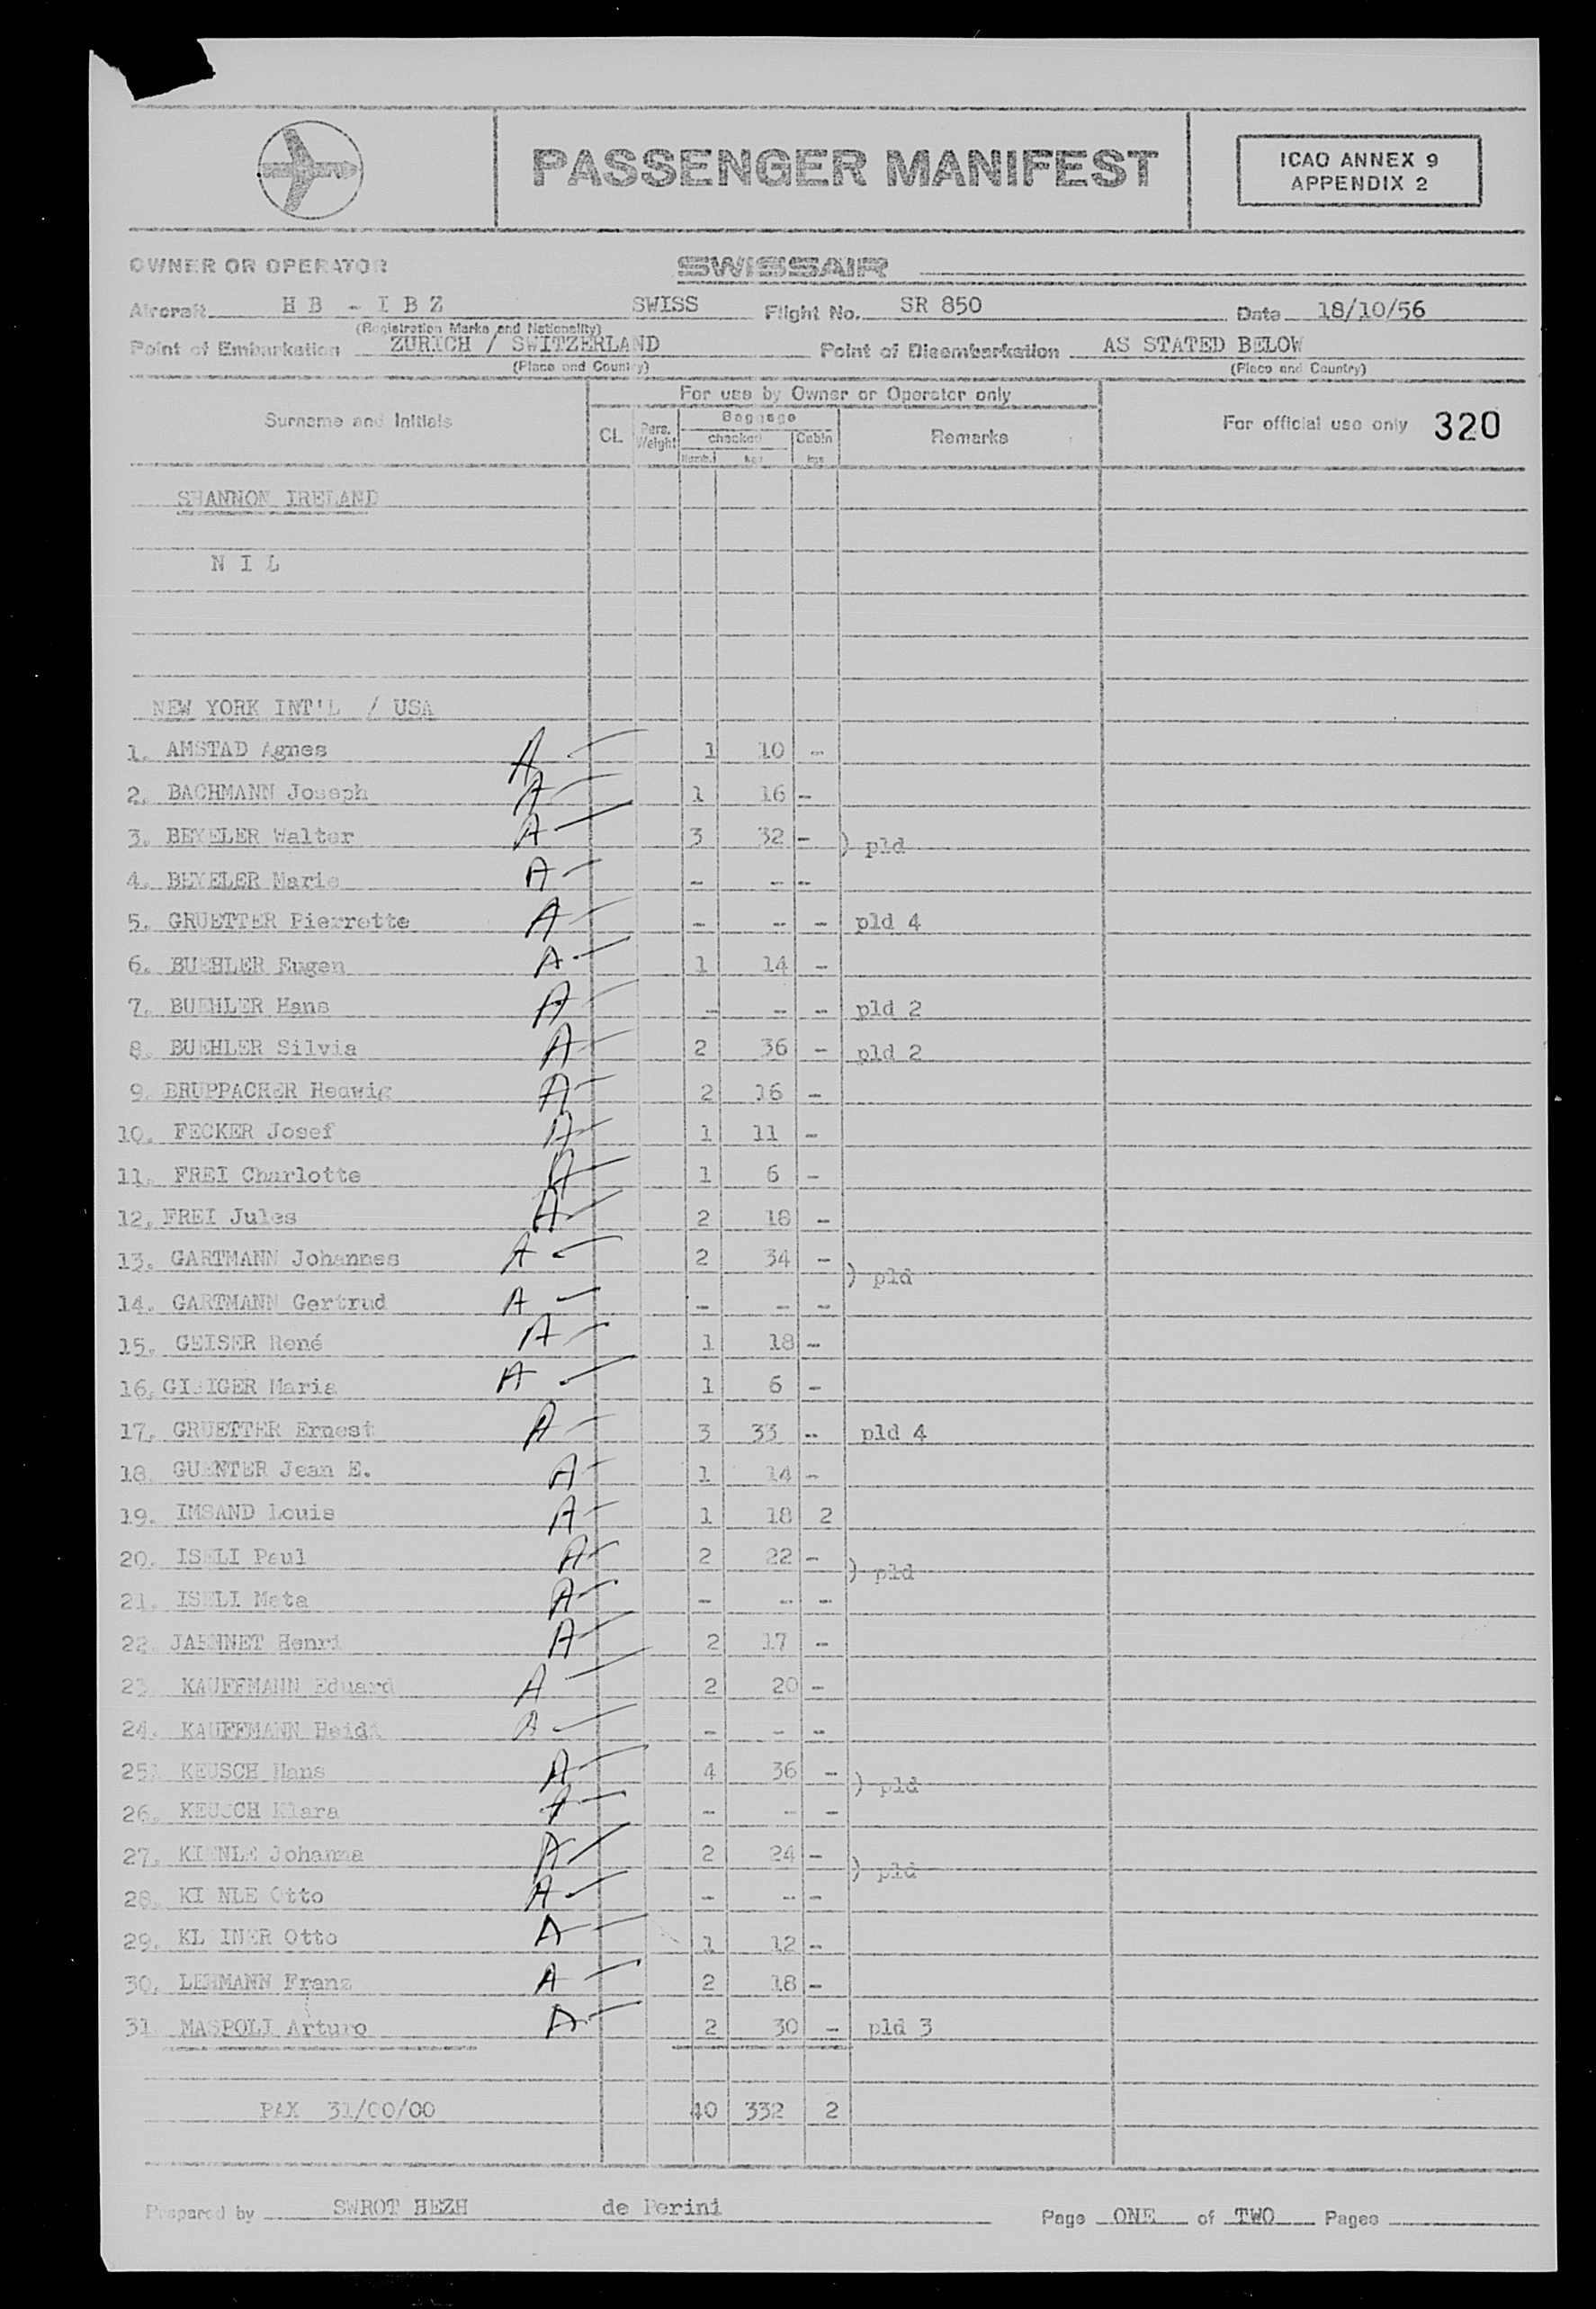 PASSENGER MANIFEST
ICAO ANNEX 9
APPENDIX 2
OWNER OR OPERATOR SWISSAIR
Aircraft HB - IBZ SWISS Flight No. SR 850 Date 18/10/56
(Registration Marks and Nationality)
Point of Embarkation ZURICH / SWITZERLAND Point of Disembarkation AS STATED BELOW
(Place and Country) (Place and Country)
For use by Owner or Operator only
Surname and Initials CL Pers. Weight Baggage checked Numb. kgs Cabin kgs Remarks For official use only 320
SHANNON IRELAND
N I L
NEW YORK INT'L / USA
1. AMSTAD Agnes A 1 10 -
2. BACHMANN Joseph A 1 16 -
3. BEYELER Walter A 3 32 - ) pld
4. BEYELER Marie A - - -
5. GRUETTER Pierrette A - - - pld 4
6. BUEHLER Eugen A 1 14 -
7. BUEHLER Hans A - - - pld 2
8. BUEHLER Silvia A 2 36 - pld 2
9. BRUPPACHER Hedwig A 2 16 -
10. FECKER Josef A 1 11 -
11. FREI Charlotte A 1 6 -
12. FREI Jules A 2 18 -
13. GARTMANN Johannes A 2 34 - ) pld
14. GARTMANN Gertrud A - - -
15. GEISER René A 1 18 -
16. Maria A 1 6 -
17. GRUETTER Ernest A 3 33 - pld 4
18. GUENTER Jean E. A 1 14 -
19. IMSAND Louis A 1 18 2
20. ISELI Paul A 2 22 - ) pld
21. ISELI Meta A - - -
22. Henri A 2 17 -
23. KAUFFMANN Eduard A 2 20 -
24. KAUFFMANN Heidi A - - -
25. KEUSCH Hans A 4 36 - ) pld
26. KEUSCH Klara A - - -
27. KIENLE Johanna A 2 24 - ) pld
28. KIENLE Otto A - - -
29. KLEINER Otto A 1 12 -
30. LEHMANN Franz A 2 18 -
31. MASPOLI Arturo A 2 30 - pld 3
PAX 31/00/00 40 332 2
Prepared by SWROT HEZH de Perini Page ONE of TWO Pages